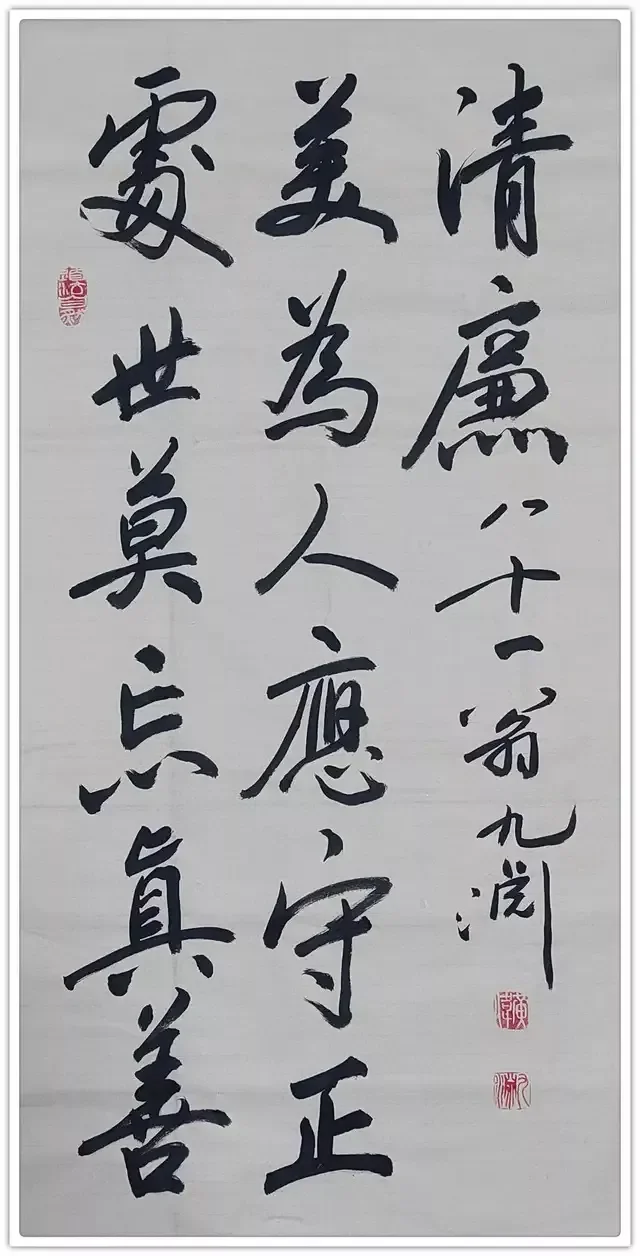 處世莫忘眞善
美為人應守正
清廉八十一翁九渊